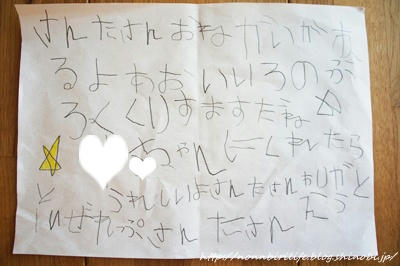 さんたさん おねがいがあ
るよ あおいいろのぶ
ろっくくりすますだね
ちゃんにくれたら
うれしいよさんたさんありがと
う
ぜれぷさんたさん
http://nonnbirilife.blog.shinobi.jp/